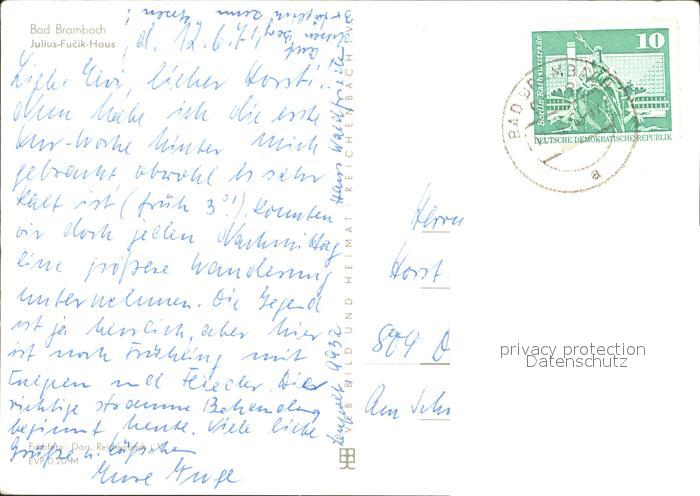 Bad Brambach
Julius-Fučik-Haus
d. 12.6.
Liebe Evi, lieber Horst!
Nun habe ich die erste
Kur-Woche hinter mich
gebracht obwohl es sehr
kalt ist (früh 3°!), konnten
wir doch jeden Nachmittag
eine größere Wanderung
unternehmen. Die Gegend
ist ja herrlich, aber hier
ist noch Frühling mit
Tulpen und Flieder. Die
richtige Behandlung
beginnt heute. Viele liebe
Grüße u.
Eure
EVP 0,20 M
VEB BILD UND HEIMAT REICHENBACH I. V.
Haus
9932
10
Berlin Rathausstraße
DEUTSCHE DEMOKRATISCHE REPUBLIK
BAD BRAMBACH
a
Herrn
Horst
804 D
Am Sch
privacy protection
Datenschutz